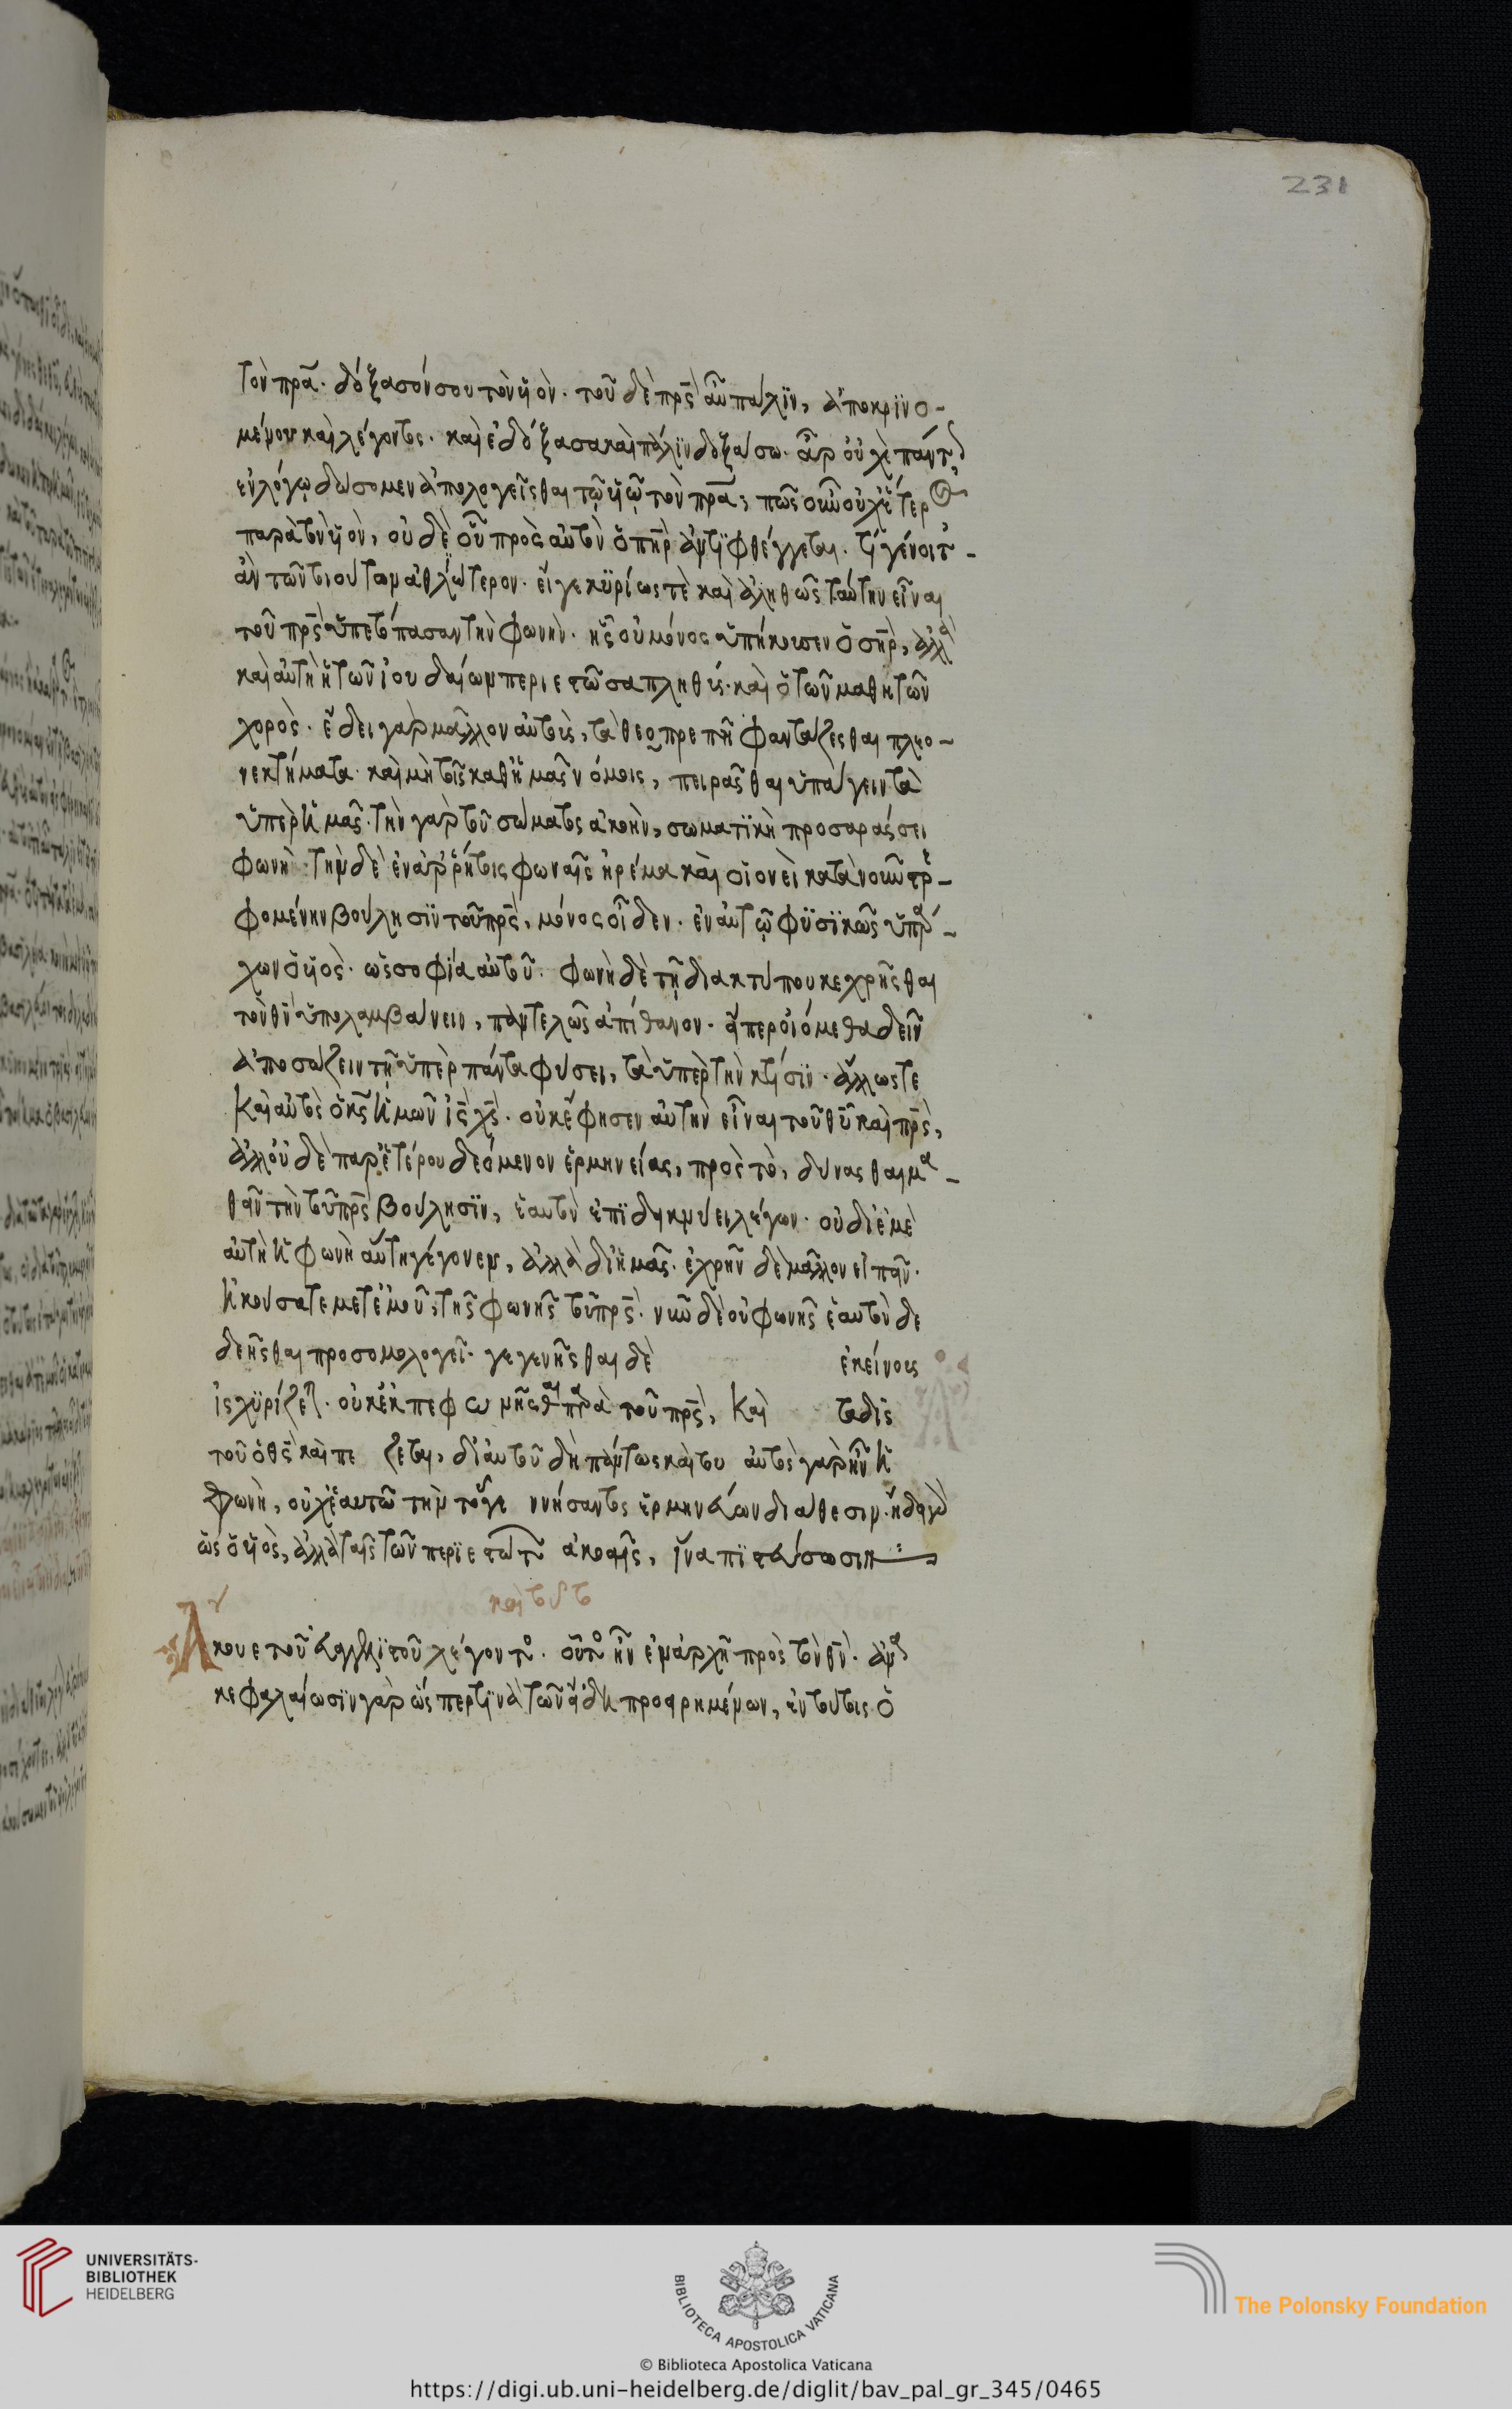 231
τὸν πρα. δόξασόν σου τὸν υἱὸν. τοῦ δὲ πρς αὖ πάλιν, ἀποκρινο-
μένου καὶ λέγοντος. καὶ ἐδόξασα καὶ πάλιν δοξάσω. ἆρ οὐχὶ παντὶ
εὐλόγω δώσομεν ἀπολογεῖσθαι τῶ υἱῶ τὸν πρα; πῶς οὖν οὐχ ἕτερος
παρὰ τὸν υἱὸν, οὐδὲ οὗ πρὸς αὐτὸν ὁ πηρ ἀντιφθέγγεται. τί γένοιτ-
ἂν τῶν τοιούτων ἀθλιώτερον. εἴγε κυρίως τὲ καὶ ἀληθῶς ταύτην εἶναι
τοῦ πρς ὑπετόπασαν τὴν φωνὴν. ἧς οὐ μόνος ὑπήκουσεν ὁ σηρ, ἀλλὰ
καὶ αὐτὴ ἡ τῶν ἰουδαίων περιεστῶσα πληθὺς. καὶ ὁ τῶν μαθητῶν
χορὸς. ἔδει γὰρ μᾶλλον αὐτοὺς, τὰ θεοπρεπῆ φαντάζεσθαι πλεο-
νεκτήματα. καὶ μὴ τοῖς καθ ἡμᾶς νόμοις, πειρᾶσθαι ὑπάγειν τὰ
ὑπὲρ ἡμᾶς. τὴν γὰρ τοῦ σώματος ἀκοὴν, σωματικὴ προσαράσσει
φωνὴ. τὴν δὲ ἐν ἀρρήτοις φωναῖς ἠρέμα καὶ οἱονεὶ κατὰ νοῦν στρε-
φομένην βούλησιν τοῦ πρς, μόνος οἶδεν. ἐν αὐτῶ φυσικῶς ὑπάρ-
χων ὁ υἱὸς. ὡς σοφία αὐτοῦ. φωνὴ δὲ τῆ διακτύπου κεχρῆσθαι
τὸν θν ὑπολαμβάνειν, παντελῶς ἀπίθανον. εἴπερ οἰόμεθα δεῖν
ἀποσώζειν τῆ ὑπὲρ πάντα φύσει, τὰ ὑπὲρ τὴν κτίσιν. ἄλλωστε
καὶ αὐτὸς ὁ κς ἡμῶν ις χς. οὐκ ἔφησεν αὐτὴν εἶναι τοῦ θυ καὶ πρς,
ἀλλ οὐδὲ παρ ἑτέρου δεόμενον ἑρμηνείας, πρὸς τὸ, δύνασθαι μα-
θεῖν τὴν τοῦ πρς βούλησιν, ἑαυτὸν ἐπιδεικνύει λέγων. οὐ δι ἐμὲ
αὐτὴ ἡ φωνὴ αὕτη γέγονεν, ἀλλὰ δι ἡμᾶς. ἐχρῆν δὲ μᾶλλον εἰπεῖν.
ἠκούσατε μετ ἐμοῦ, τῆς φωνῆς τοῦ πρς. νῦν δὲ οὐ φωνῆς ἑαυτὸν δε
δεῆσθαι προσομολογεῖ. γεγενῆσθαι δὲ ἐκείνους
ἰσχυρίζεται. οὐκ ἐκπεφωνῆσθαι παρὰ τοῦ πρς, καὶ ταδὶς
τοῦ ὁ θς καὶ πε ζεται, δι αυτοῦ δὴ πάντως καὶ του αὐτὸς γὰρ ἦν ἡ
φωνὴ, οὐχ ἑαυτῶ τὴν τοῦ γε ννήσαντος ἑρμηνεύων διάθεσιν. ἤδει γὰρ
ὡς ὁ υἱὸς, ἀλλὰ ταῖς τῶν περιεστώτων ἀκοαῖς, ἵνα πιστεύσωσιν
καὶ τοῦτο
Ἄκουε τοῦ εὐαγγελιστοῦ λέγοντος. οὗτος ἦν ἐν ἀρχῆ πρὸς τὸν θν. ἀνα
κεφαλαίωσιν γὰρ ὥσπερ τινὰ τῶν ἤδη προειρημένων, ἐν τούτοις ὁ
UNIVERSITÄTS-
BIBLIOTHEK
HEIDELBERG
BIBLIOTECA APOSTOLICA VATICANA
The Polonsky Foundation
© Biblioteca Apostolica Vaticana
https://digi.ub.uni-heidelberg.de/diglit/bav_pal_gr_345/0465